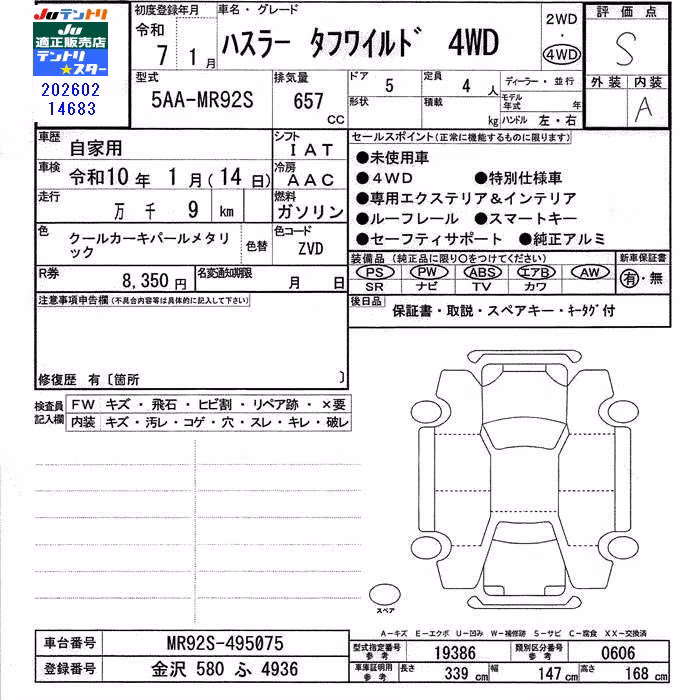 Juテントリ
Ju
適正販売店
テントリ
★スター
202602
14683
初度登録年月
令和
7 1月
車名・グレード
ハスラー タフワイルド 4WD
2WD
・
4WD
評価点
S
外装 内装
A
型式
5AA-MR92S
排気量
657
CC
ドア
5
形状
定員
4 人
積載
kg
ディーラー・並行
モデル年式 年
ハンドル 左・右
車歴
自家用
シフト
IAT
車検
令和10年 1月(14日)
冷房
AAC
走行
万 千 9 km
燃料
ガソリン
色
クールカーキパールメタリ
ック
色替
色コード
ZVD
R券
8,350円
名変通知期限
月 日
セールスポイント(正常に機能するものに限ります)
●未使用車
●4WD ●特別仕様車
●専用エクステリア&インテリア
●ルーフレール ●スマートキー
●セーフティサポート ●純正アルミ
装備品(純正品に限り○をつけてください)
新車保証書
PS PW ABS エアB AW
有・無
SR ナビ TV カワ
後日品
保証書・取説・スペアキー・キータグ付
注意事項申告欄(不具合内容等は具体的に記入して下さい)
修復歴 有〔箇所 〕
検査員
記入欄
FW キズ・飛石・ヒビ割・リペア跡・×要
内装 キズ・汚レ・コゲ・穴・スレ・キレ・破レ
スペア
A-キズ E-エクボ U-凹み W-補修跡 S-サビ C-腐食 XX-交換済
車台番号
MR92S-495075
登録番号
金沢 580 ふ 4936
型式指定番号
参考
19386
類別区分番号
参考
0606
車庫証明用
参考
長さ 339 cm 幅 147 cm 高さ 168 cm